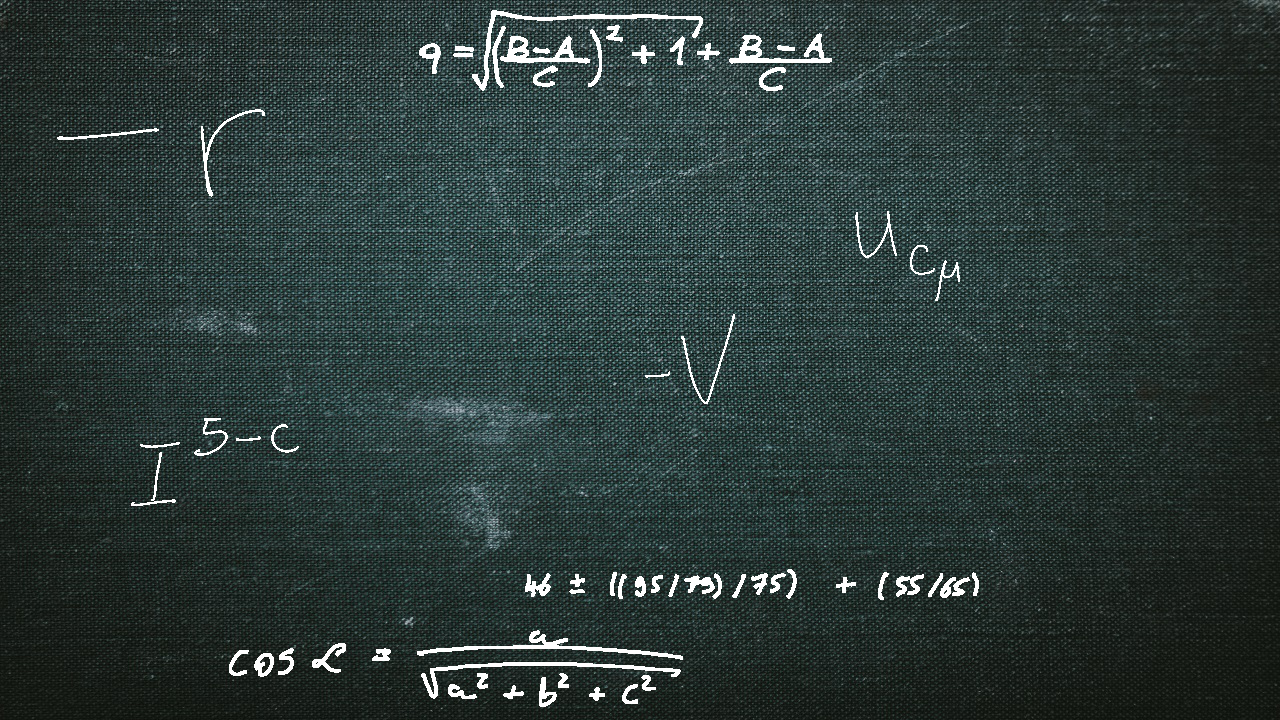 q = \sqrt{\left(\frac{B-A}{C}\right)^2 + 1} + \frac{B-A}{C}
- r
u_{c_\mu}
- V
I^{5-c}
46 ± ((95/79)/75) + (55/65)
\cos \alpha = \frac{a}{\sqrt{a^2 + b^2 + c^2}}